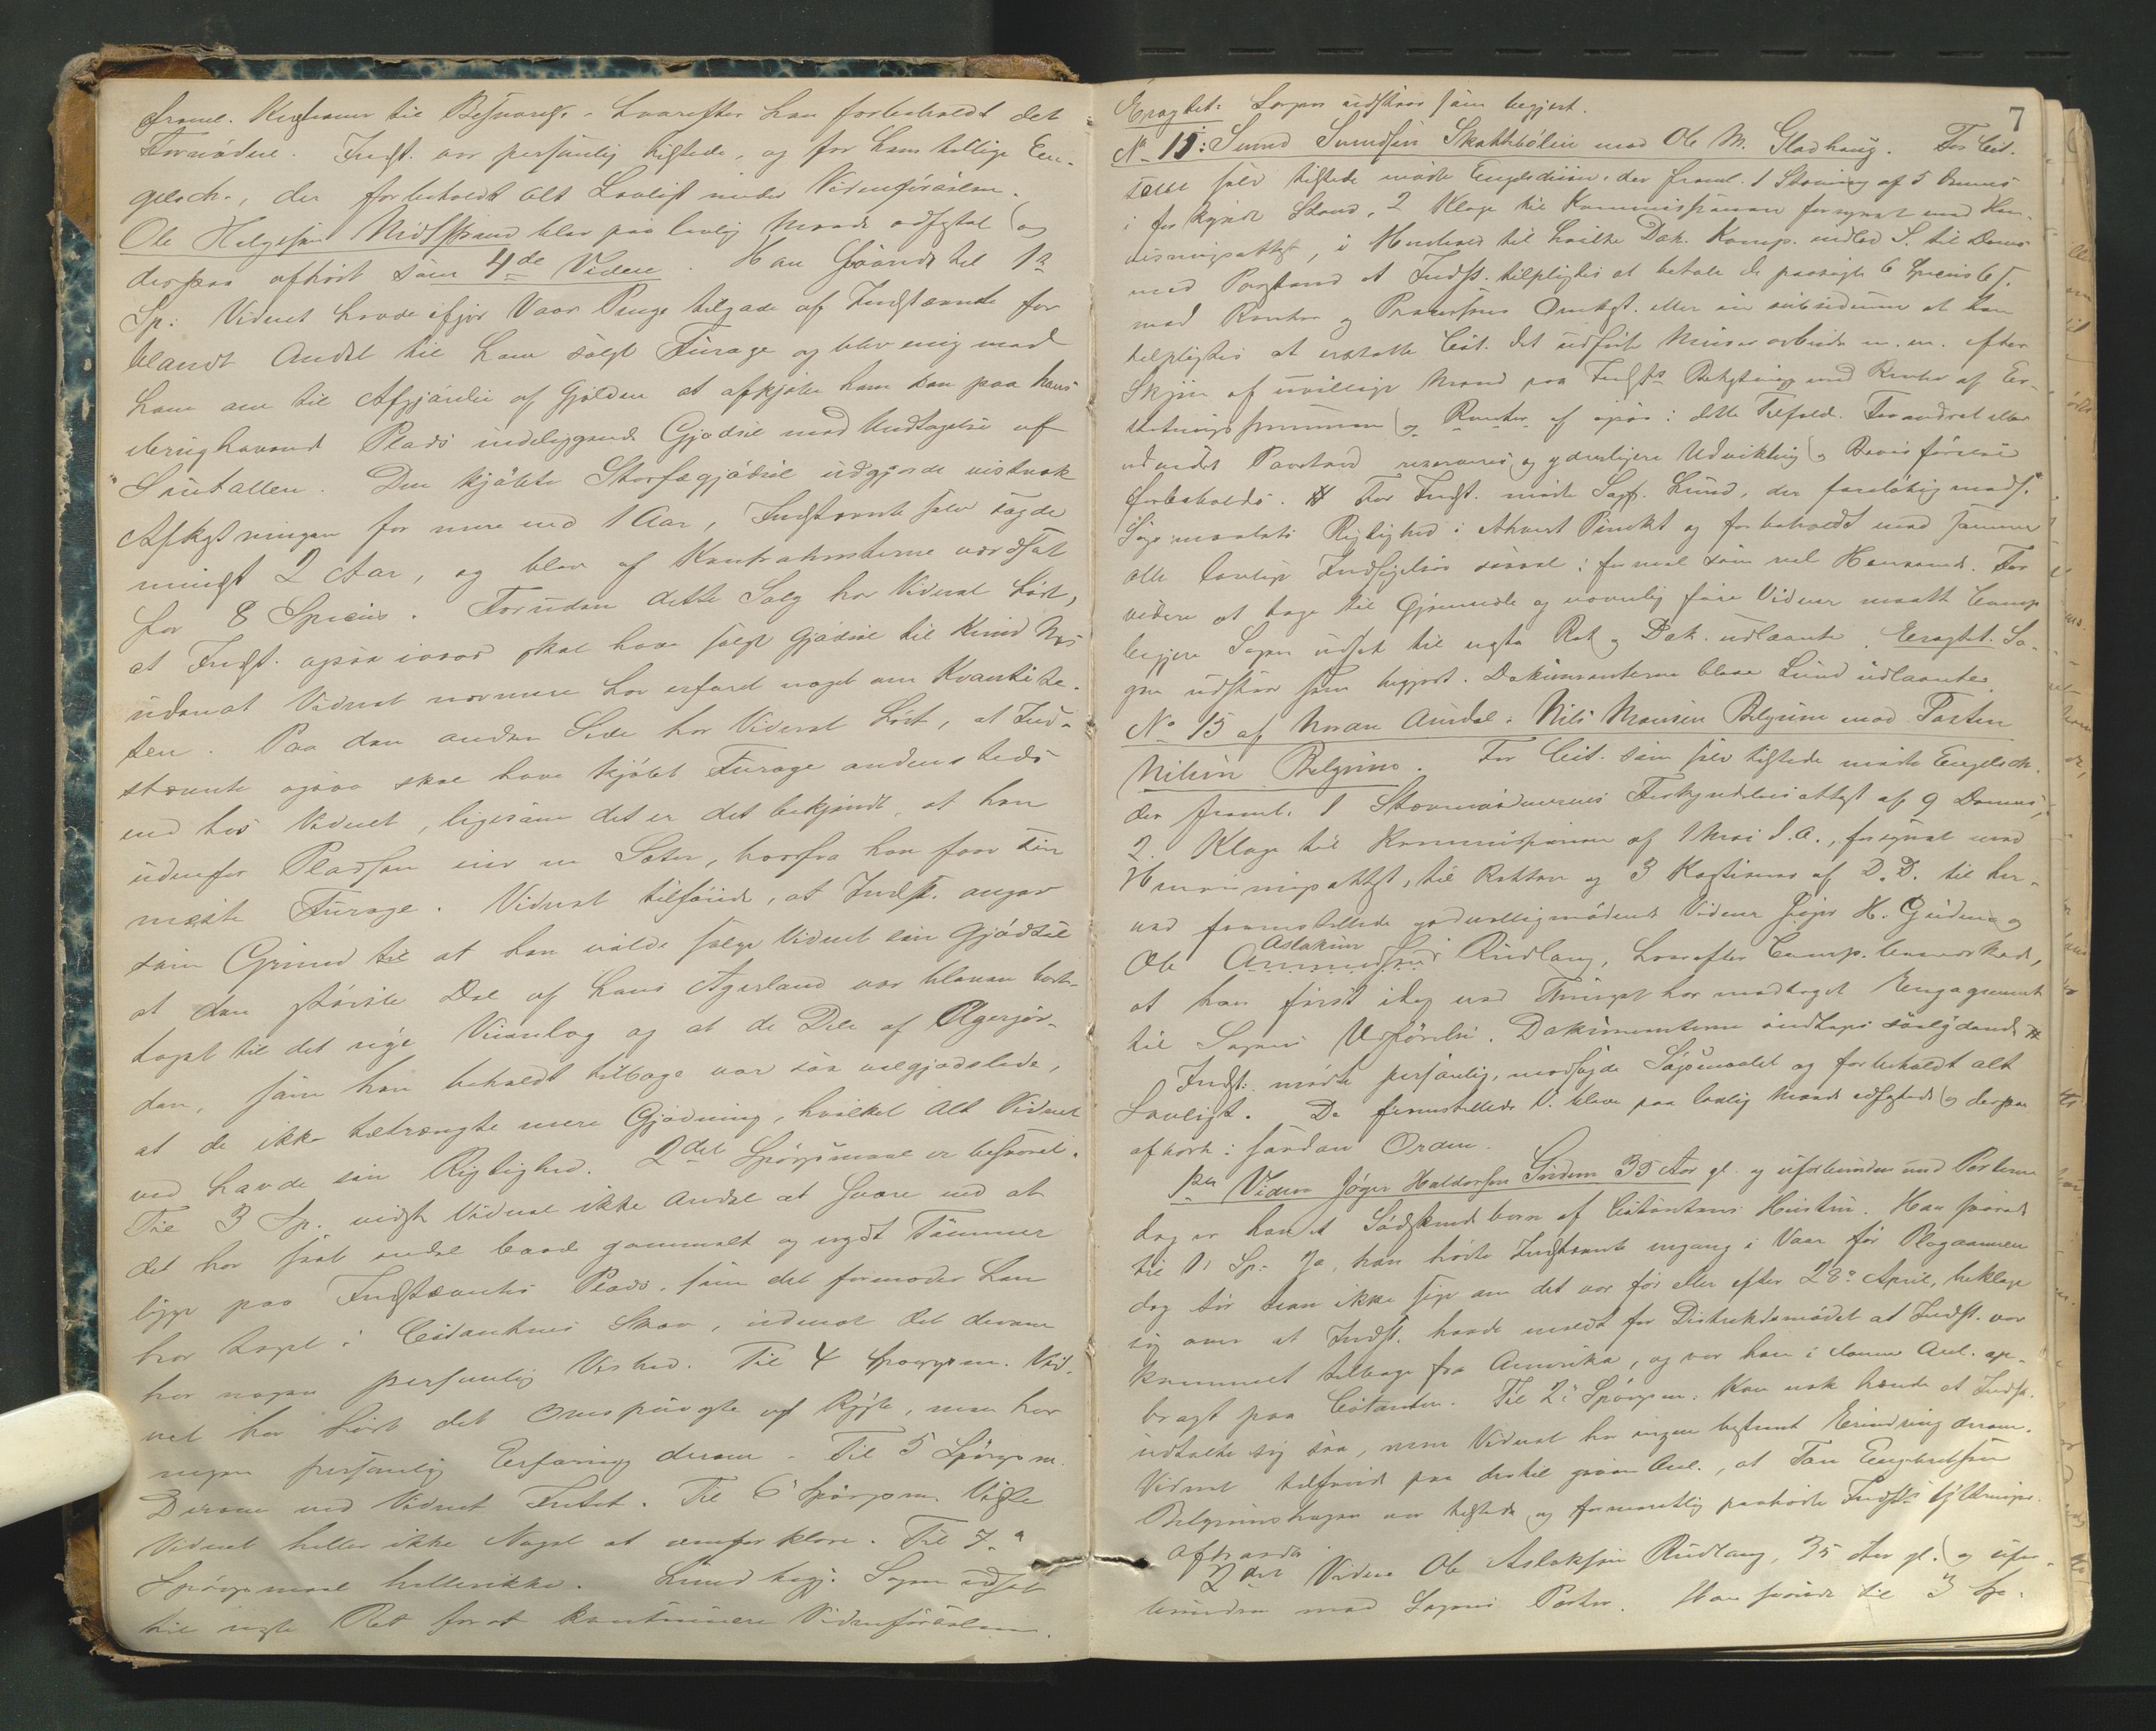 freml. Kvæstioner til Besvarelse, hvorefter han forbeholdt det
Fornødne. Indst. var personlig tilstede, og for ham tillige En-
gelsch., der forbeholdt alt Lovligt under Vidneførselen.
Ole Helgesen Midtstrand blev paa lovlig Maade edfæstet og
derpaa afhørt som 4de Vidne. Han svarede til 1ste
Sp: Vidnet havde ifjor Vaar Penge tilgode af Indstævnte for
blandt Andet til ham solgt Furage og blev enig med
ham om til Afgjørelse af Gjælden at afkjøbe ham den paa hans
brughavende Plads indeliggende Gjødsel med Undtagelse af
Smutallen. Den kjøbte Storfægjødsel udgjorde vistnok
Afkastningen for mere end 1 Aar, Indstævnte selv sagde
mindst 2 Aar, og blev af Kontrahenterne værdsat
for 8 Species. Foruden dette Salg har Vidnet hørt,
at Indst. ogsaa ivaar skal have solgt Gjødsel til
udenat Vidnet nærmere har erfaret noget om Kvantite-
ten. Paa den anden Side har Vidnet hørt, at Ind-
stævnte ogsaa skal have kjøbt Furage andensteds
end hos Vidnet, ligesom det er det bekjendt, at han
udenfor Pladsen eier en Sæter, hvorfra han faar sin
meste Furage. Vidnet tilføiede, at Indst. angav
som Grund til at han vilde sælge Vidnet sin Gjødsel
at den største Del af hans Agerland var bleven bort-
taget til det nye Veianlæg og at de Dele af Agerjor-
den, som han beholdt tilbage var saa velgjødslede,
at de ikke tiltrængte mere Gjødning, hvilket Alt Vidnet
ved havde sin Rigtighed. 2det Spørgsmaal er besvaret.
Til 3 Sp. vidste Vidnet ikke Andet at svare end at
det har seet endel baade gammelt og nyt Tømmer
ligge paa Indstævntes Plads, som det formoder han
har taget i Citantens Skov, udenat det derom
har nogen personlig Vished. Til 4 Spørgsm. Vid-
net har hørt det Omspurgte af Rygte, men har
ingen personlig Erfaring derom. Til 5 Spørgsm.
Derom ved Vidnet Intet. Til 6 Spørgsm. Vidste
Vidnet heller ikke Noget at omforklare. Til 7de
Spørgsmaal hellerikke. Lund begj. Sagen udsat
til næste Ret forat kontinuere Vidneførselen.
7
Eragtet: Sagen udstaar som begjert.
No 11: Svend Svendsen Skatteboelien mod Ole M. Gladhaug. For Cit.
som selv tilstede mødte Engelschiøn, der freml. 1 Stævning af 5
i forkyndt Stand, 2 Klage til Kommissionen forsynet med Hen-
visningsattest, i Henhold til hvilke Dok. Komp. indlod S. til Doms
med Paastand at Indst. tilpligtes at betale de paasøgte 6 Species
med Renter og Processens Omkost. eller in subsidium at han
tilpligtes at erstatte Cit. det udførte Murerarbeide m. m. efter
Skjøn af uvillige Mænd paa Indst's Bekostning med Renter af Er-
statningssummen og Renter af ogsaa i dette Tilfælde. Forandret eller
udvidet Paastand reserveres og yderligere Udvikling og Bevisførelse
forbeholdes. For Indst. mødte Sagf. Lund, der foreløbig mods.
Søgsmaalets Rigtighed i ethvert Punkt og forbeholdt med samme
alle lovlige Indsigelser saavel i formel som reel Henseende. For
videre at tage til Gjenmæle og navnlig føre Vidner maatte Comp.
begjere Sagen udsat til næste Ret og Dok. udlaante. Eragtet. Sa-
gen udstaar som begjert. Dokumenterne bleve Lund udlaante.
No 15 af Nordre Aurdal. Nils Monsen Belgum mod Torsten
Nilsen Belgum. For Cit. som selv tilstede mødte Engelsch.
der freml. 1 Stævnevidnernes Forkyndelsesattest af 9 Dennes,
2. Klage til Kommissionen af 1 Mai d. A., forsynet med
Henvisningsattest, til Retten og 3 Kvæstioner af D. D. til her-
ved fremstillede godvilligmødende Vidner Jøger H. og
Ole Aslaksen Rudlang, hvorefter Comp. bemærkede,
at han først idag ved Thinget har modtaget Engagement
til Sagens Udførelse. Dokumenterne indtages saalydende
Indst. mødte personlig, modsagde Søgsmaalet og forbeholdt alt
Lovligt. De fremstillede V. bleve paa lovlig Maade edfæstede og derpaa
afhørte i saadan Orden.
1ste Vidne Jøger Haldorsen 35 Aar gl. og uforbunden med Parterne
dog er han et Sødskendebarn af Citantens Hustru. Han svarede
til 1 Sp: Ja, han hørte Indstævnte engang i Vaar før Plogaannen
dog tør han ikke sige om det var før eller efter 28de April, beklage
sig over at Indst. havde meldt for Distriktsmødet at Indst. var
kommet tilbage fra Amerika, og var han i denne Anl. op-
bragt paa Citanten. Til 2de Spørgsm: Kan nok hænde at Indst.
udtalte sig saa, men Vidnet har ingen bestemt Erindring derom.
Vidnet tilføiede paa dertil given Anl., at Tore Engebretsen
Belgumshagen var tilstede og formentlig paahørte Indst's Ytringer.
2det Vidne Ole Aslaksen Rudlang, 35 Aar gl. og ufor-
bunden med Sagens Parter. Han svarede til 3 Sp.